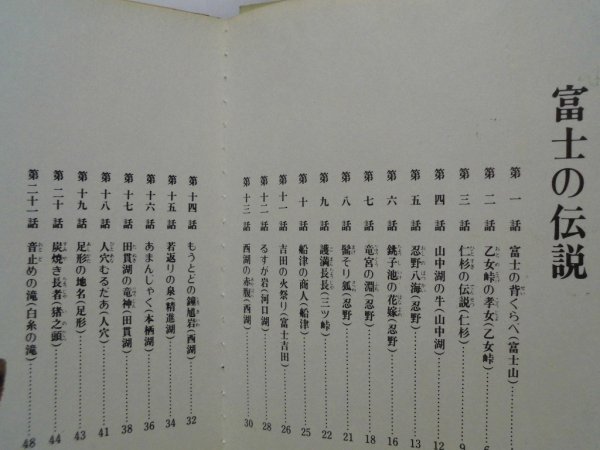 富士の伝説
第一話 富士の背くらべ(富士山)
第二話 乙女峠の孝女(乙女峠) 6
第三話 仁杉の伝説(仁杉) 9
第四話 山中湖の牛(山中湖) 12
第五話 忍野八海(忍野) 13
第六話 銚子池の花嫁(忍野) 16
第七話 竜宮の淵(忍野) 18
第八話 髯そり狐(忍野) 21
第九話 護満長長(三ツ峠) 22
第十話 船津の商人(船津) 25
第十一話 吉田の火祭り(富士吉田) 26
第十二話 るすが岩(河口湖) 28
第十三話 西湖の赤腹(西湖) 30
第十四話 もうとどの鐘馗岩(西湖) 32
第十五話 若返りの泉(精進湖) 34
第十六話 あまんしゃく(本栖湖) 36
第十七話 田貫湖の竜神(田貫湖) 38
第十八話 人穴むるだあ(人穴) 41
第十九話 足形の地名(足形) 43
第二十話 炭焼き長者(猪之頭) 44
第二十一話 音止めの滝(白糸の滝) 48